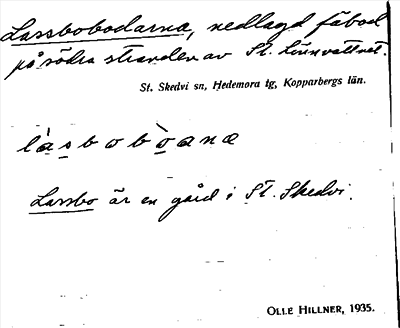 Lassbobodarna, nedlagd fäbod
på södra stranden av St. Lönnvattnet.
St. Skedvi sn, Hedemora tg, Kopparbergs län.
làsbobòana
Lassbo är en gård i St. Skedvi.
OLLE HILLNER, 1935.